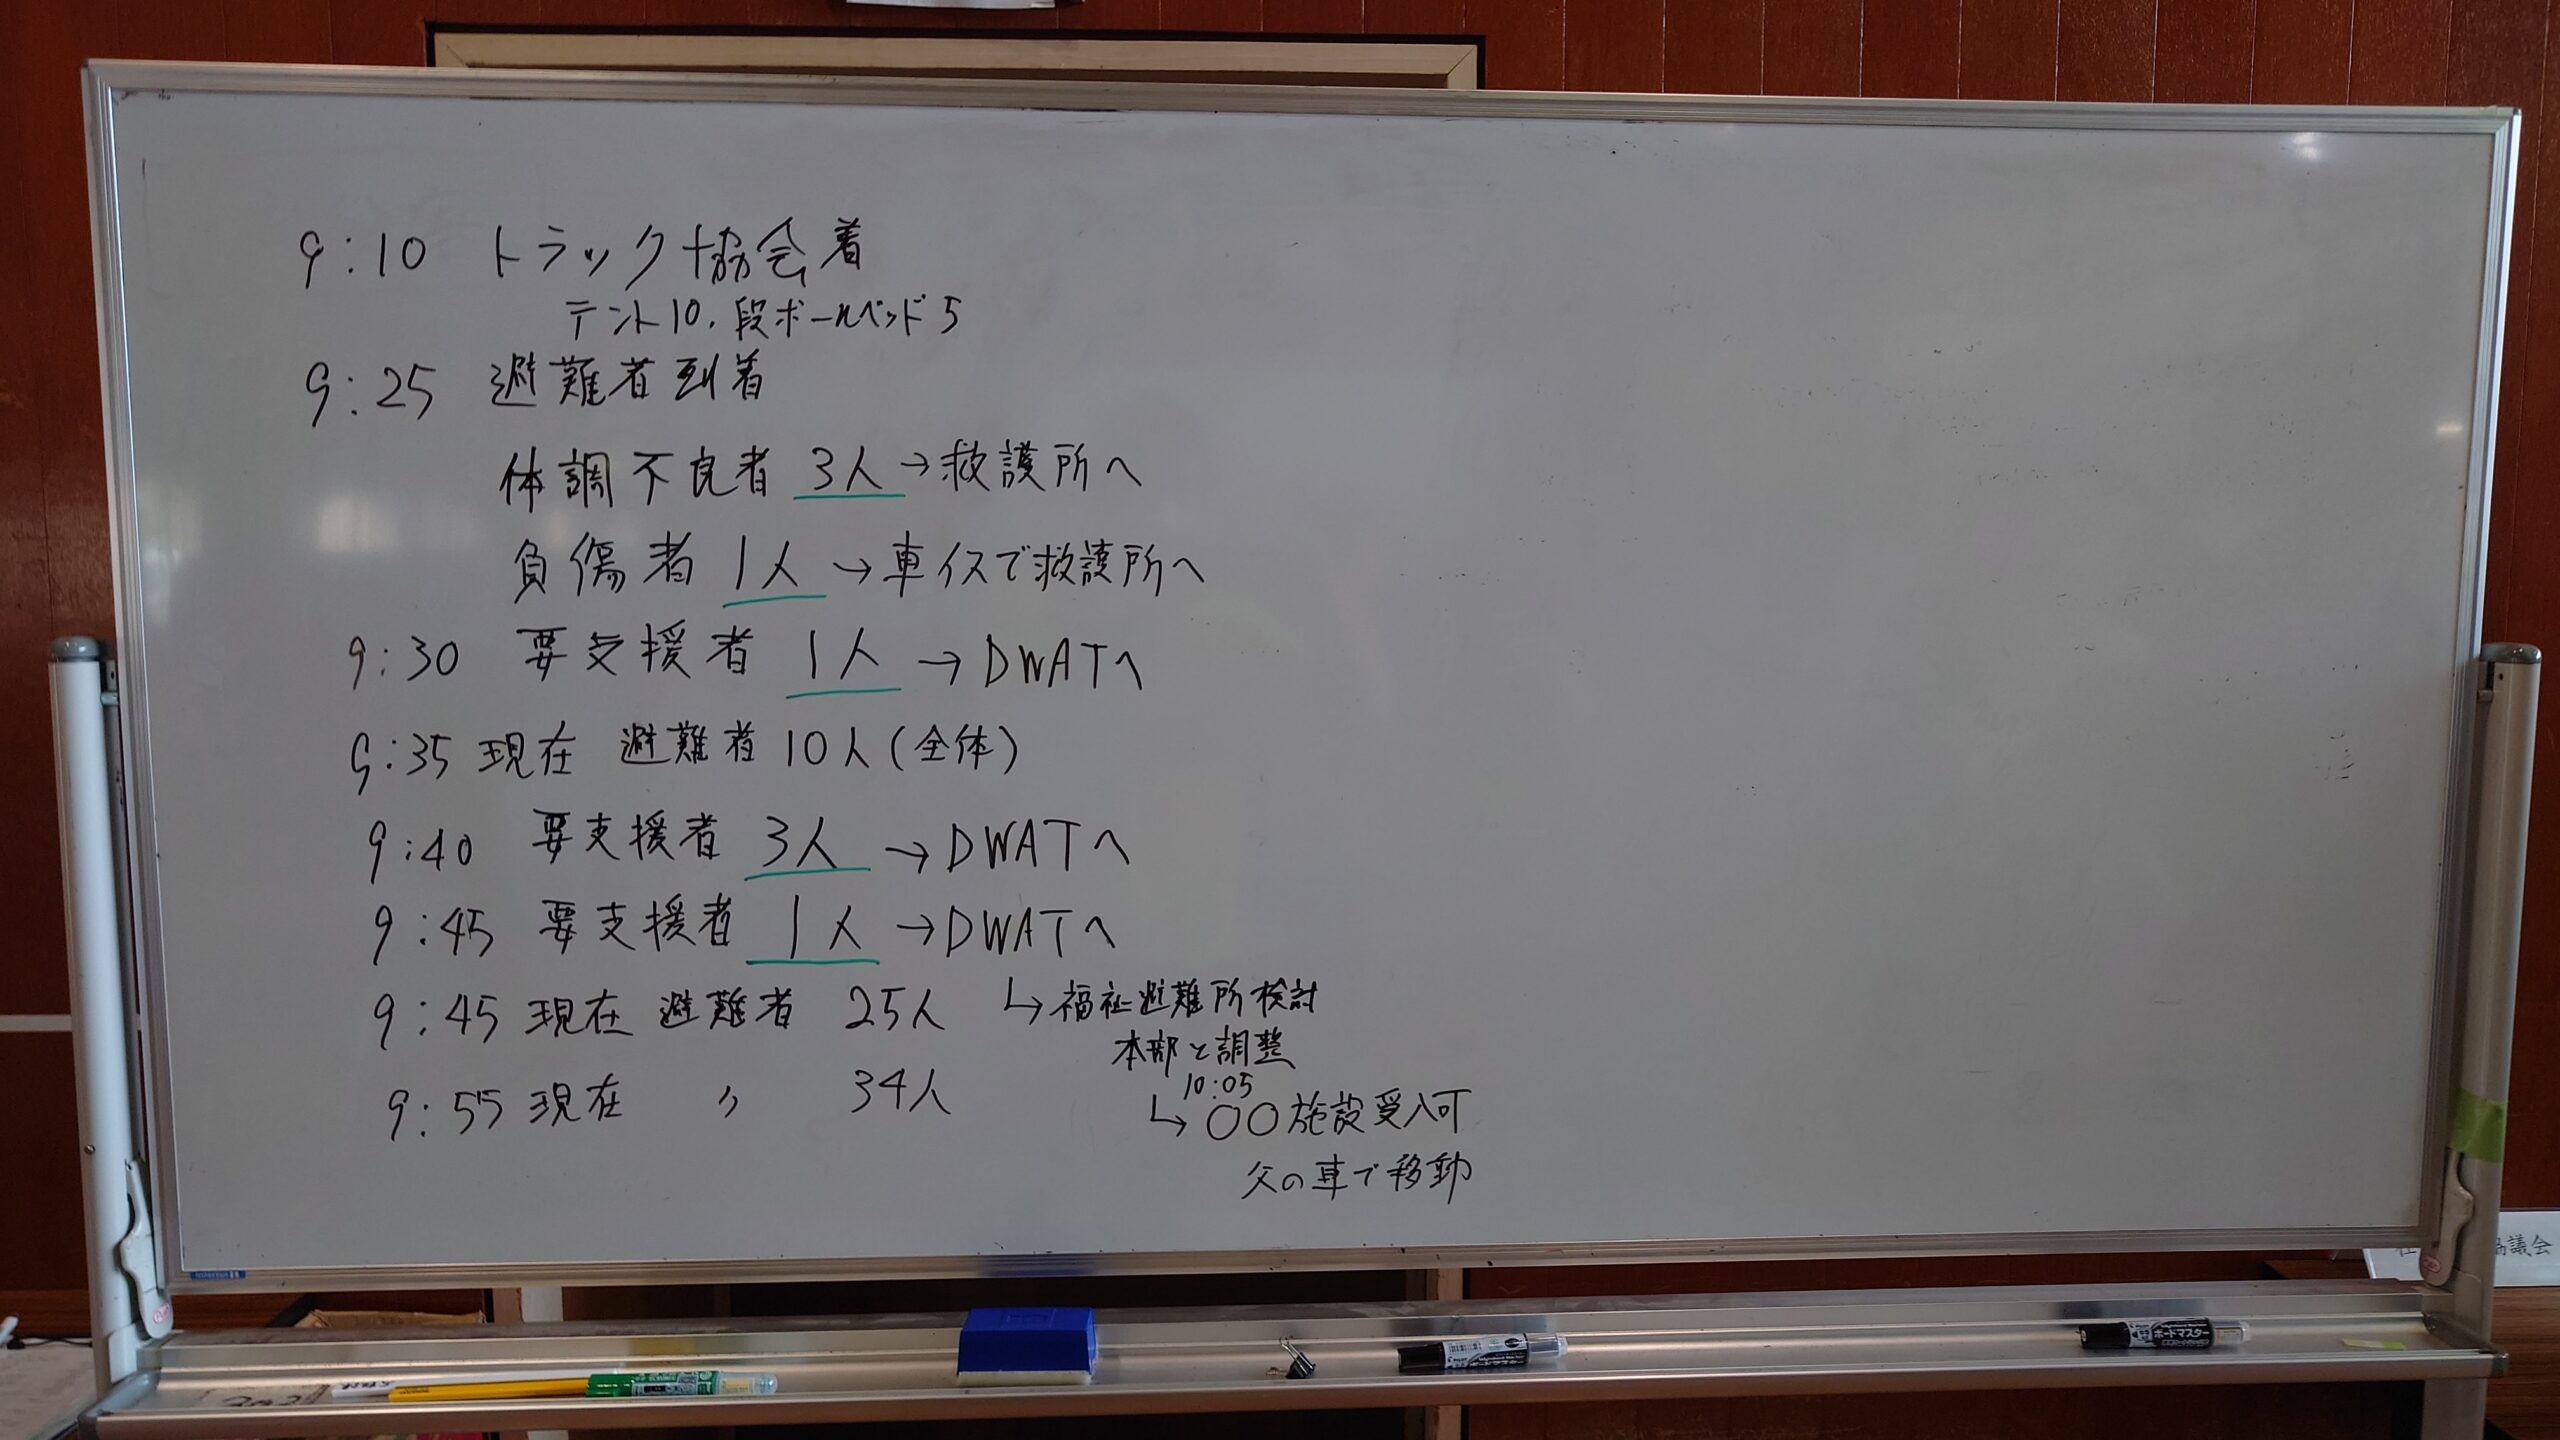 9:10 トラック協会着
テント10、段ボールベッド5
9:25 避難者到着
体調不良者 3人→救護所へ
負傷者 1人→車イスで救護所へ
9:30 要支援者 1人→DWATへ
9:35現在 避難者10人(全体)
9:40 要支援者 3人→DWATへ
9:45 要支援者 1人→DWATへ
9:45現在 避難者 25人
↳福祉避難所検討
本部と調整
9:55現在 〃 34人
10:05
↳○○施設受入可
父の車で移動
協議会
ボードマスター